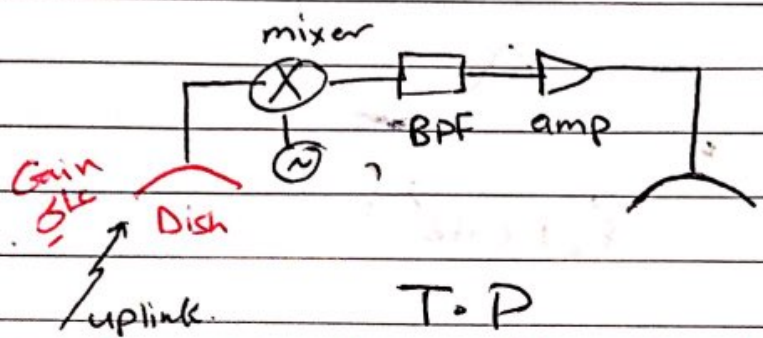 mixer
X
BPF amp
Gain
Dish
uplink.
T.P